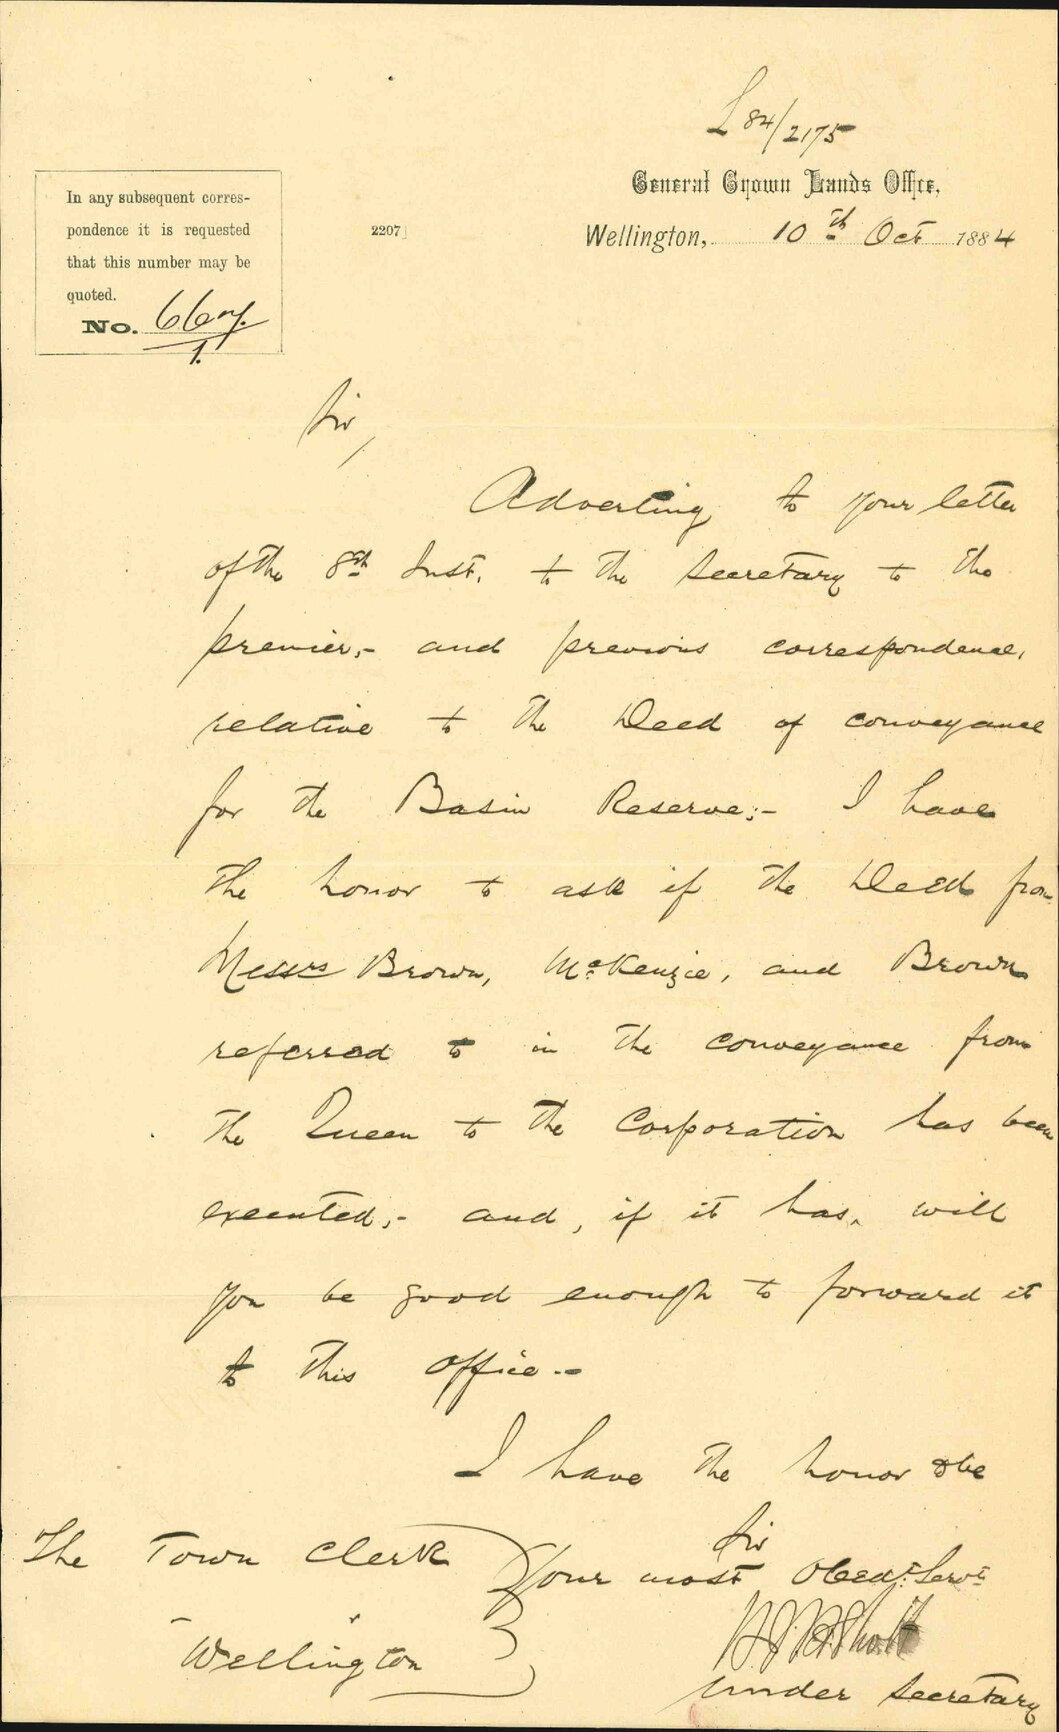 L 84/2175
General Crown Lands Office,
Wellington, 10th Oct 1884
2207
In any subsequent corres-
pondence it is requested
that this number may be
quoted.
No. 667/1.
Sir,
Adverting to your letter
of the 8th Inst. to the Secretary to the
premier,- and previous correspondence,
relative to the Deed of conveyance
for the Basin Reserve;- I have
the honor to ask if the Deed from
Messrs Brown, McKenzie, and Brown
referred to in the conveyance from
the Queen to the Corporation has been
executed,- and, if it has, will
you be good enough to forward it
to this Office.-
I have the honor to be
Sir
Your most Obedt Servt
Under Secretary
The Town Clerk
Wellington